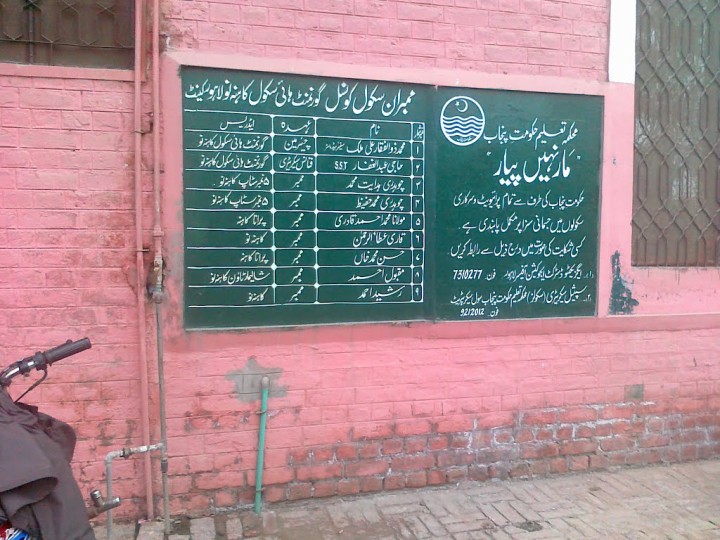 ممبران سکول کونسل گورنمنٹ ہائی سکول کاہنہ نو لاہور کینٹ
نمبر نام عہدہ ایڈریس
۱ محمد ذوالفقار علی ملک چیئرمین گورنمنٹ ہائی سکول کاہنہ نو
۲ حاجی عبدالغفار SST فنانس سیکرٹری گورنمنٹ ہائی سکول کاہنہ نو
۳ چوہدری ہدایت محمد ممبر سٹاپ کاہنہ نو
۴ چوہدری محمد حفیظ ممبر سٹاپ کاہنہ نو
۵ مولانا محمد احمد قادری ممبر پرانا کاہنہ
۶ قاری عطاء الرحمٰن ممبر کاہنہ نو
۷ حسن محمد خاں ممبر پرانا کاہنہ
۸ مقبول احمد ممبر شالیمار ٹاون کاہنہ نو
۹ رشید احمد ممبر کاہنہ نو
محکمہ تعلیم حکومت پنجاب
"مار نہیں پیار"
حکومت پنجاب کی طرف سے تمام پرائیویٹ و سرکاری
سکولوں میں جسمانی سزا پر مکمل پابندی ہے۔
کسی شکایت کی صورت میں درج ذیل سے رابطہ کریں۔
۱۔ ایگزیکٹو ڈسٹرکٹ ایجوکیشن آفیسر لاہور فون 7510277
۲۔ سپیشل سیکریٹری (سکولز) محکمہ تعلیم حکومت پنجاب سول سیکریٹریٹ
فون 9212012